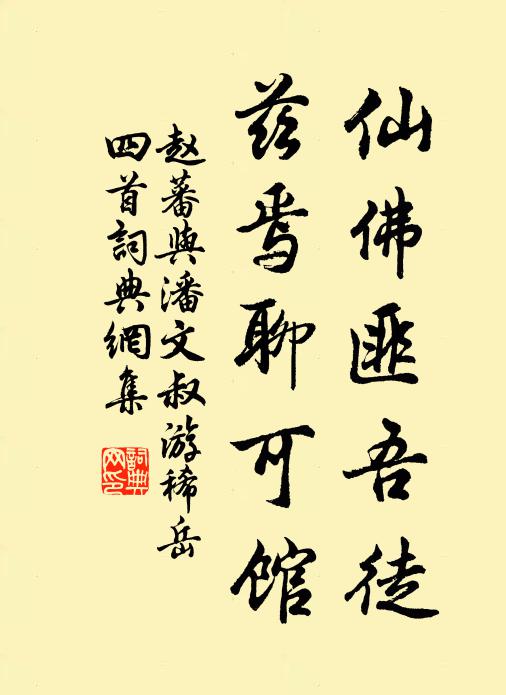 仙佛匪吾徒
兹焉聊可馆
赵蕃與潘文叔游稀岳
四首詞典網集
詞典網印